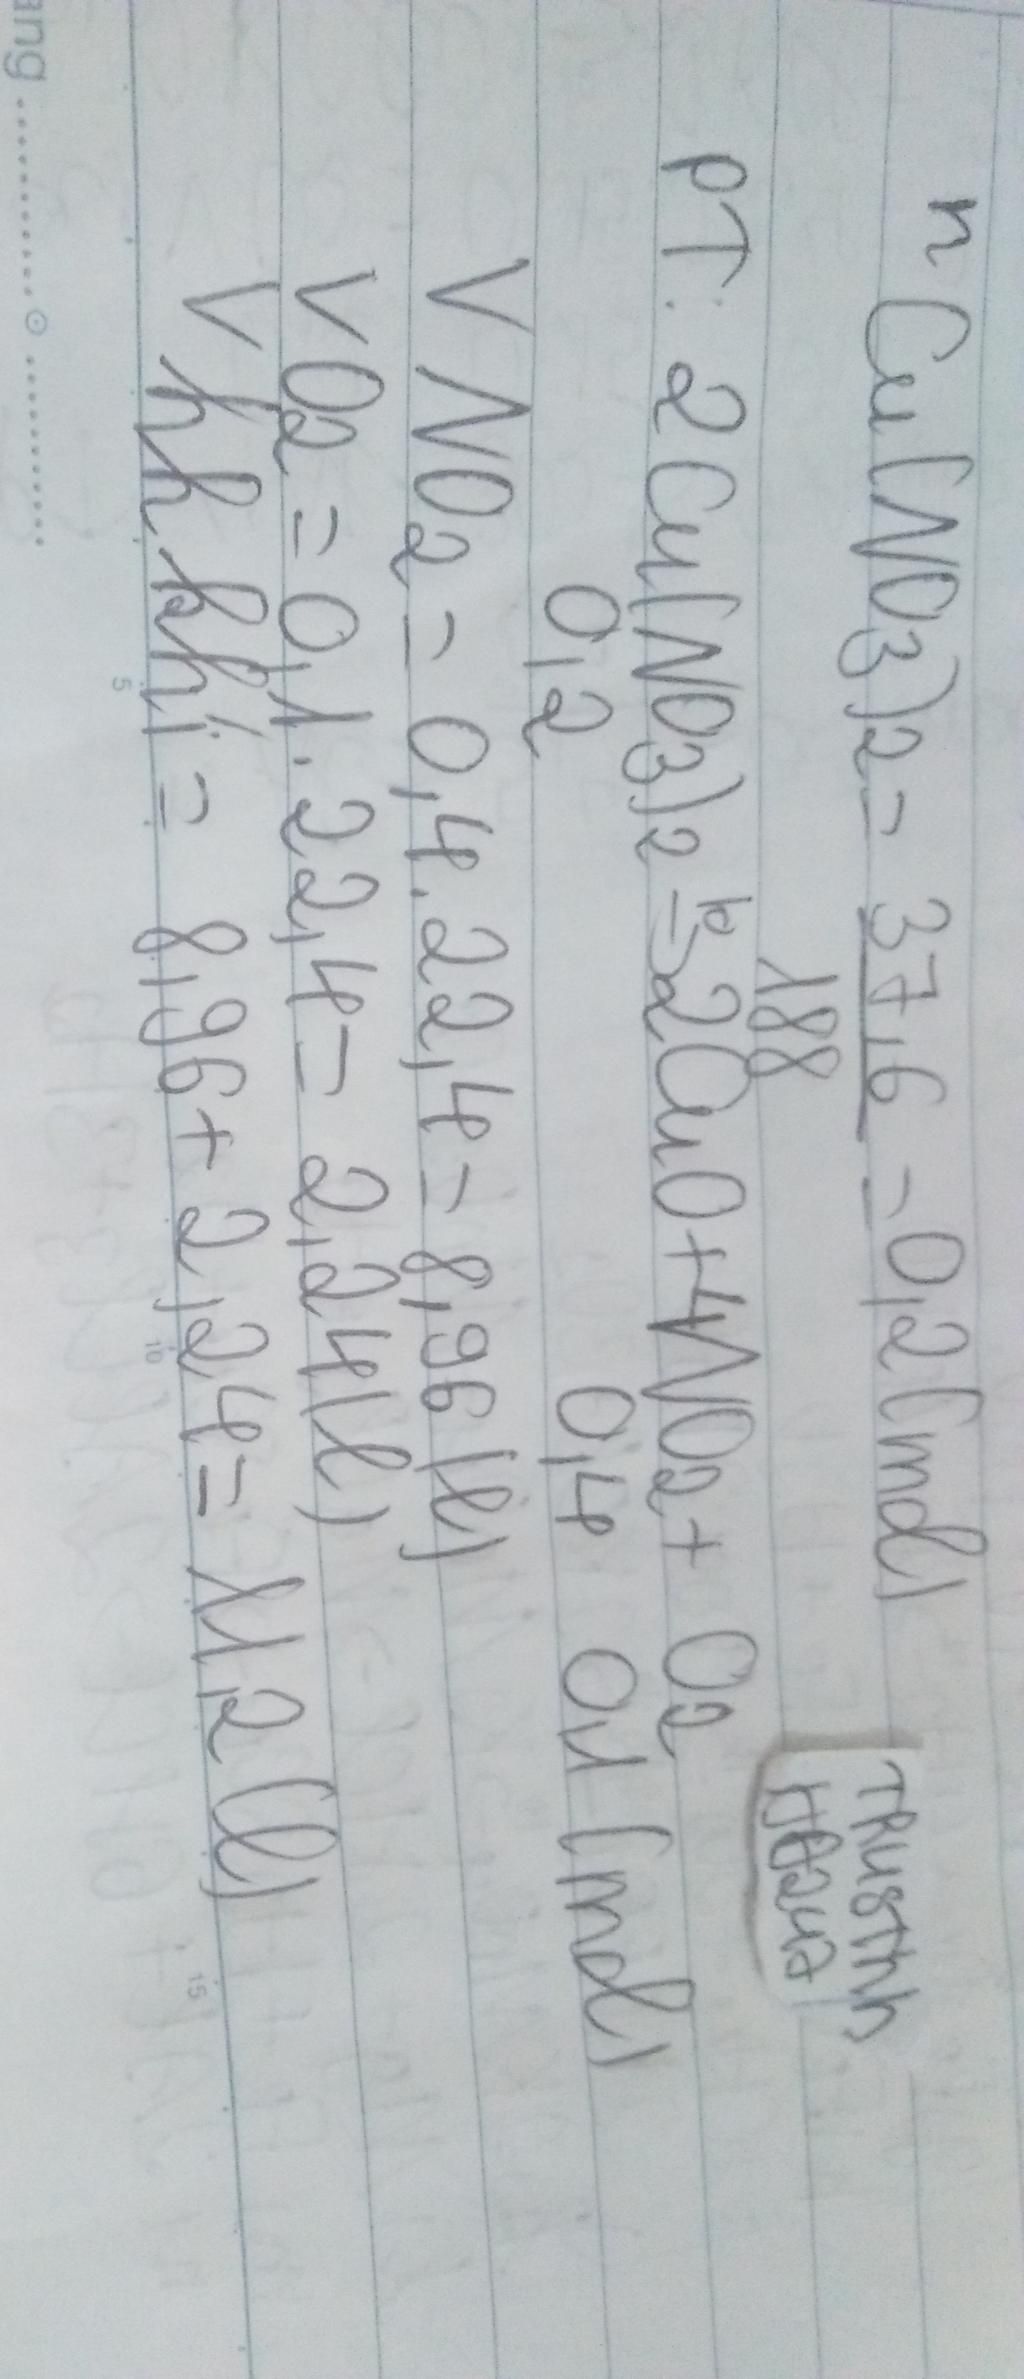 n Cu(NO3)2 = 37,6 = 0,2 (mol)
188
PT: 2Cu(NO3)2 =t°> 2CuO + 4NO2 + O2
0,2 0,4 0,1 (mol)
V NO2 = 0,4 . 22,4 = 8,96 (l)
V O2 = 0,1 . 22,4 = 2,24 (l)
V hh khí = 8,96 + 2,24 = 11,2 (l)
ang
5 10 15